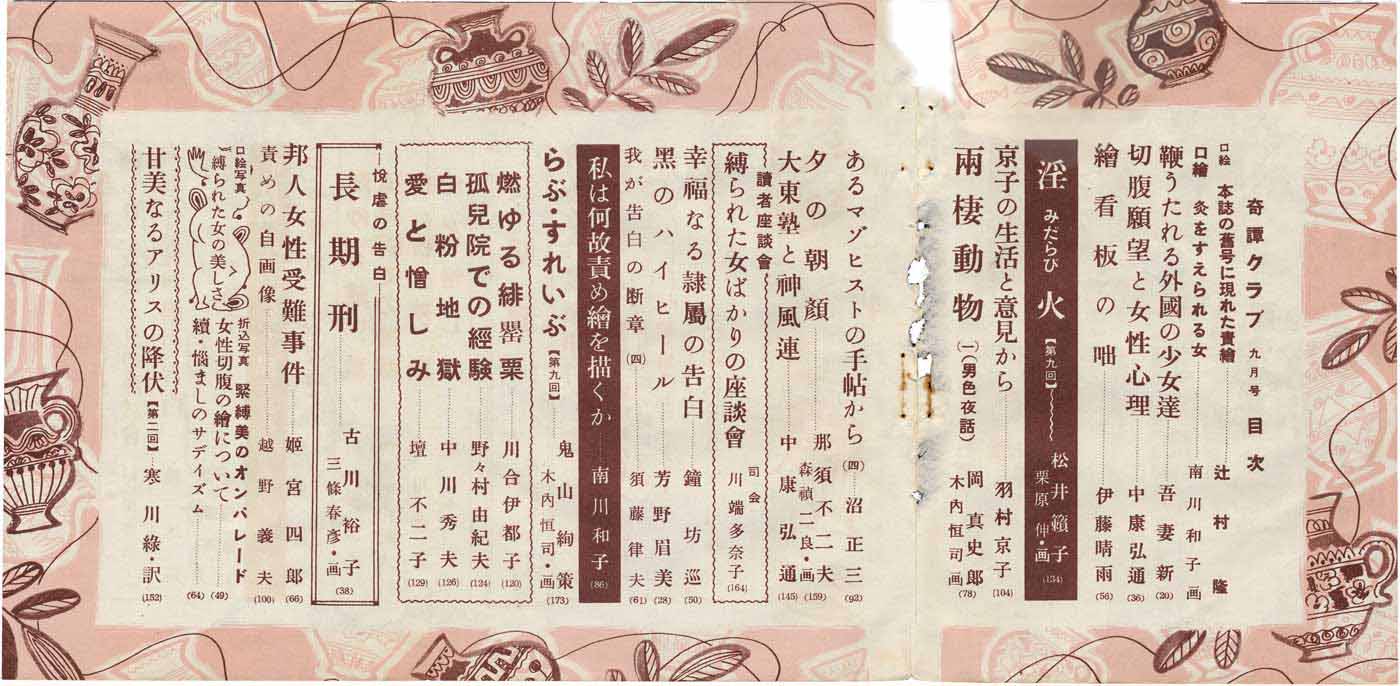 奇譚クラブ 九月号 目次
口絵 本誌の舊号に現れた責繪 辻村隆
口繪 灸をすえられる女 南川和子画
鞭うたれる外國の少女達 吾妻新 (20)
切腹願望と女性心理 中康弘通 (36)
繪看板の咄 伊藤晴雨 (56)
淫火 みだらび 【第九回】 松井籟子 栗原伸・画 (134)
京子の生活と意見から 羽村京子 (104)
兩棲動物 (一) (男色夜話) 岡真史郎 木內恒司画 (78)
あるマゾヒストの手帖から (四) 沼正三 (92)
夕の朝顔 那須不二夫 森禎二良・画 (159)
大東塾と神風連 中康弘通 (145)
讀者座談會
縛られた女ばかりの座談會 司会 川端多奈子 (164)
幸福なる隷屬の告白 鐘坊巡 (50)
黑のハイヒール 芳野眉美 (28)
我が告白の断章 (四) 須藤律夫 (61)
私は何故責め繪を描くか 南川和子 (86)
らぶ・すれいぶ 【第九回】 鬼山絢策 木內恒司・画 (173)
燃ゆる緋罌粟 川合伊都子 (120)
孤兒院での經驗 野々村由紀夫 (124)
白粉地獄 中川秀夫 (126)
愛と憎しみ 壇不二子 (129)
悅虐の告白
長期刑 古川裕子 三條春彦・画 (38)
邦人女性受難事件 姫宮四郎 (66)
責めの自画像 越野義夫 (100)
口絵写真 縛られた女の美しさ
折込写真 緊縛美のオンパレード
女性切腹の繪について (49)
續・惱ましのサデイズム (64)
甘美なるアリスの降伏 【第二回】 寒川綠訳 (152)